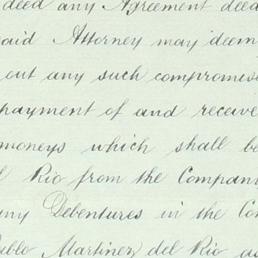 deed any Agreement deed
said Attorney may deem
out any such compromise
payment of and receive
moneys which shall be
Rio from the Company
any Debentures in the Co
Pablo Martinez del Rio as